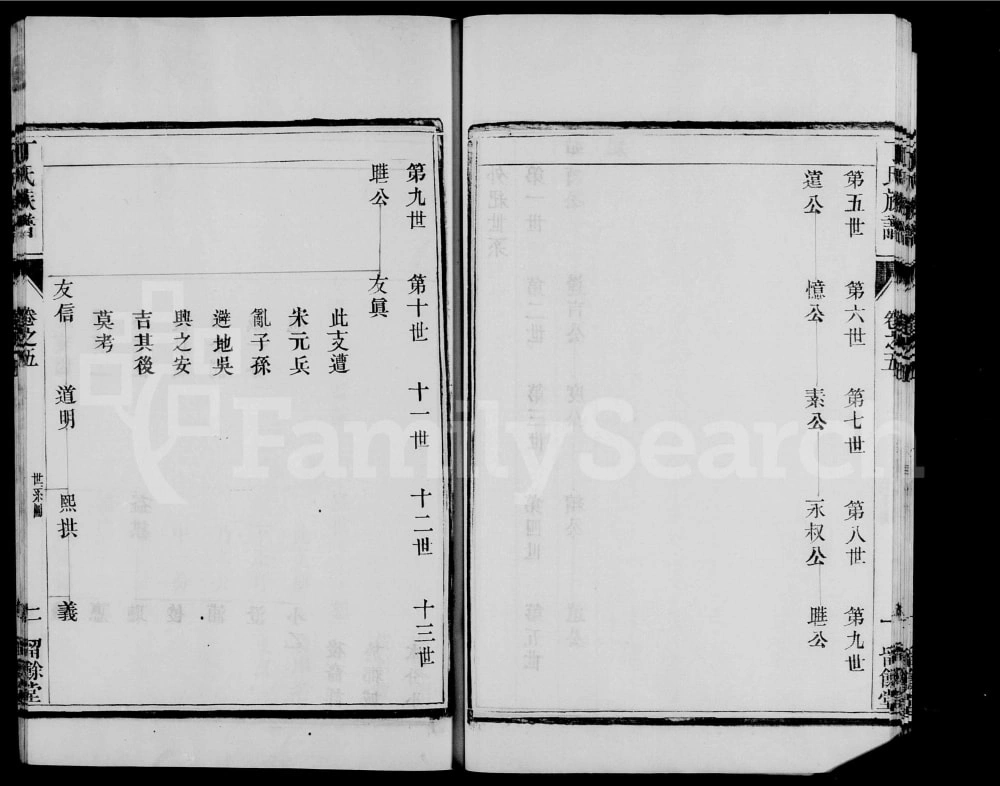 第五世 第六世 第七世 第八世 第九世
薳公 憶公 素公 永叔公 聦公
丁氏族譜 卷之五 一 留餘堂
第九世 第十世 十一世 十二世 十三世
公 友眞
此支遭
宋元兵
亂子孫
避地吳
興之安
吉其後
莫考
友信 道明 熙拱 義
丁氏族譜 卷之五 世系圖 二 留餘堂
FamilySearch